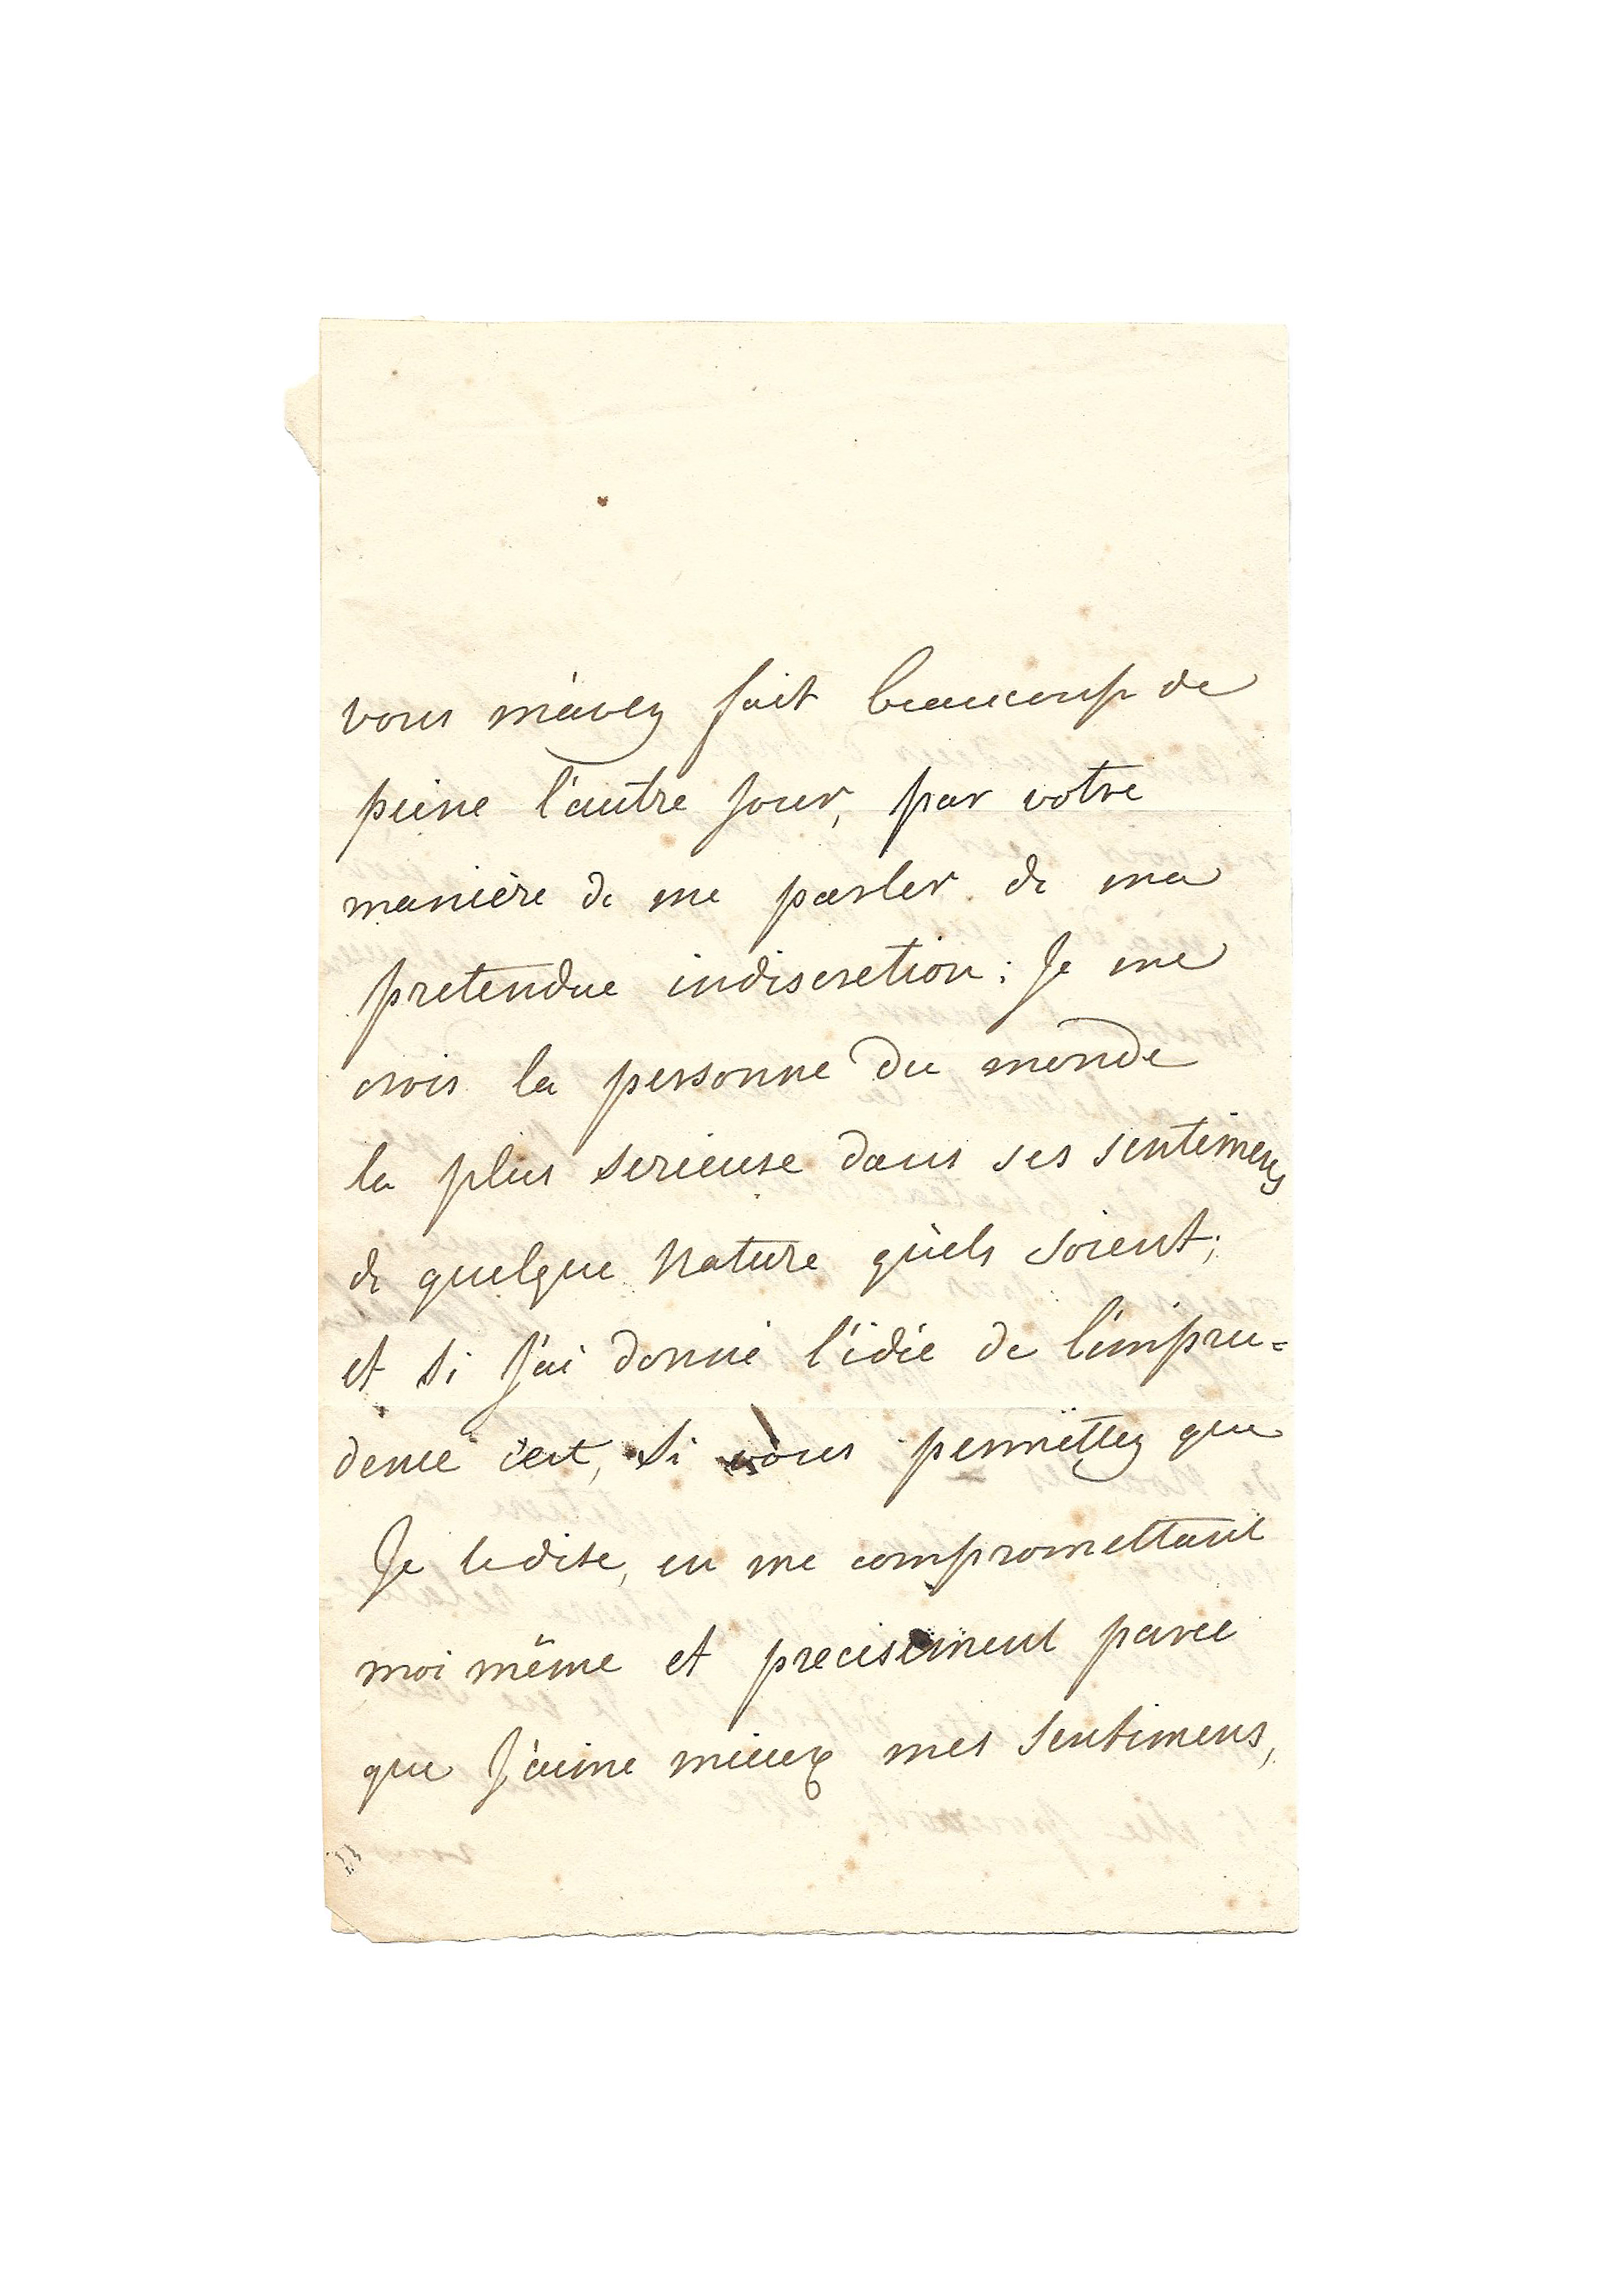 vous m'avez fait beaucoup de
peine l'autre jour, par votre
manière de me parler de ma
pretendue indiscretion : Je me
crois la personne du monde
la plus serieuse dans ses sentimens
de quelque Nature qu'els soient ;
et si J'ai donné l'idée de l'impru=
dence c'est, si vous permettez que
Je le dise, en me compromettant
moi même et precisement parce
que J'aime mieux mes sentimens,